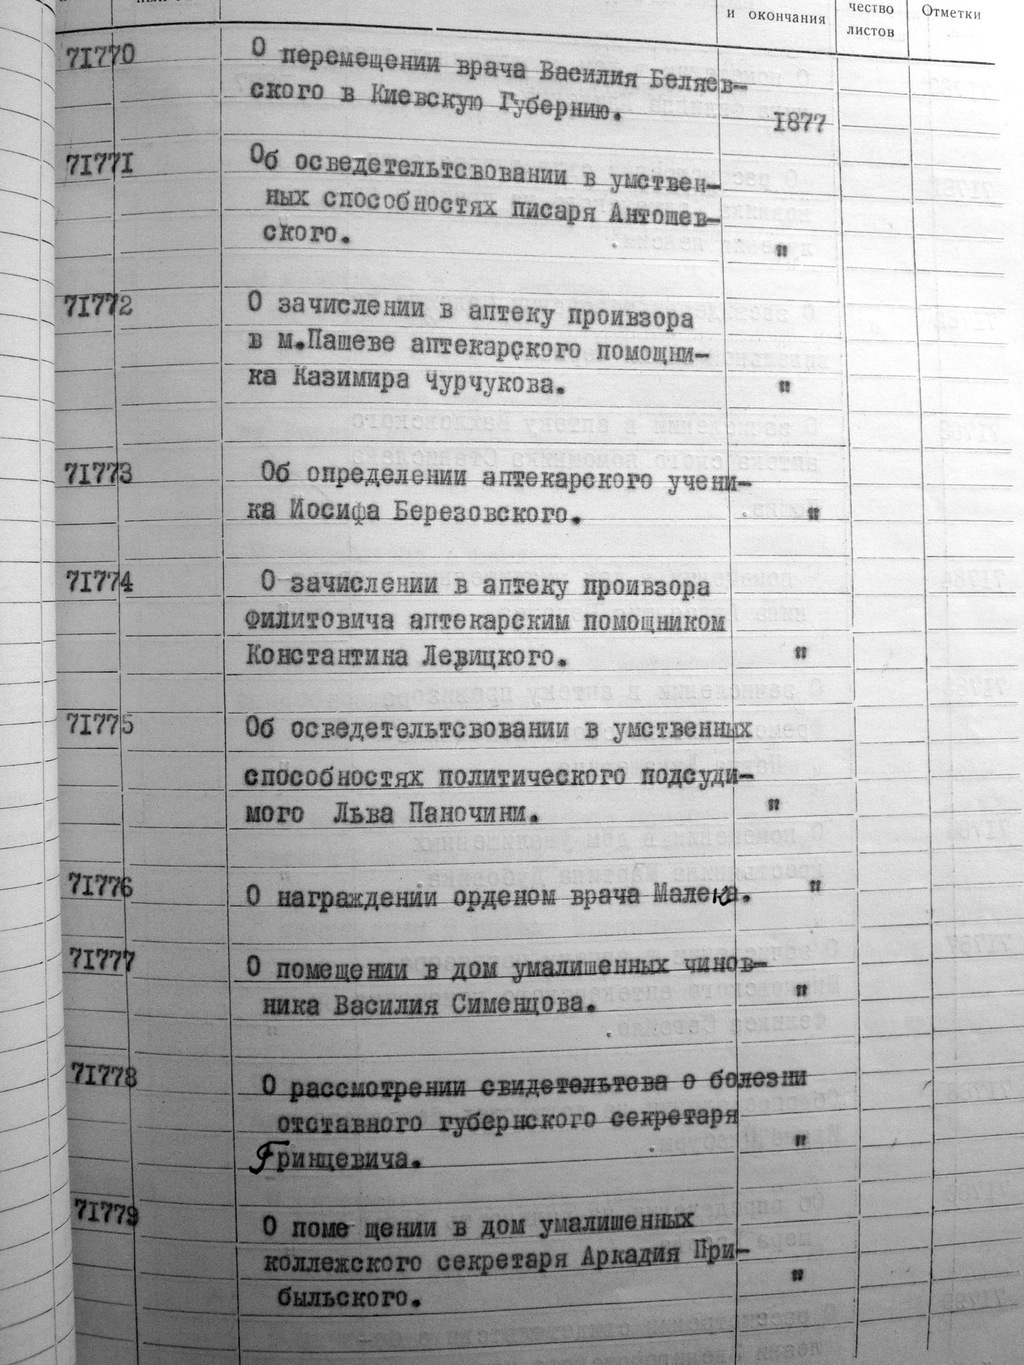 и окончания
чество
листов
Отметки
71770 О перемещении врача Василия Беляев-
ского в Киевскую Губернию.
1877
71771 Об осведетельтсвовании в умствен-
ных способностях писаря Антошев-
ского. "
71772 О зачислении в аптеку проивзора
в м.Пашеве аптекарского помощни-
ка Казимира Чурчукова. "
71773 Об определении аптекарского учени-
ка Иосифа Березовского. "
71774 О зачислении в аптеку проивзора
Филитовича аптекарским помощником
Константина Левицкого. "
71775 Об осведетельтсвовании в умственных
способностях политического подсуди-
мого Льва Паночини. "
71776 О награждении орденом врача Малека. "
71777 О помещении в дом умалишенных чинов-
ника Василия Сименцова. "
71778 О рассмотрении свидетельтсва о болезни
отставного губернского секретаря
Гринцевича. "
71779 О поме щении в дом умалишенных
коллежского секретаря Аркадия При-
быльского. "